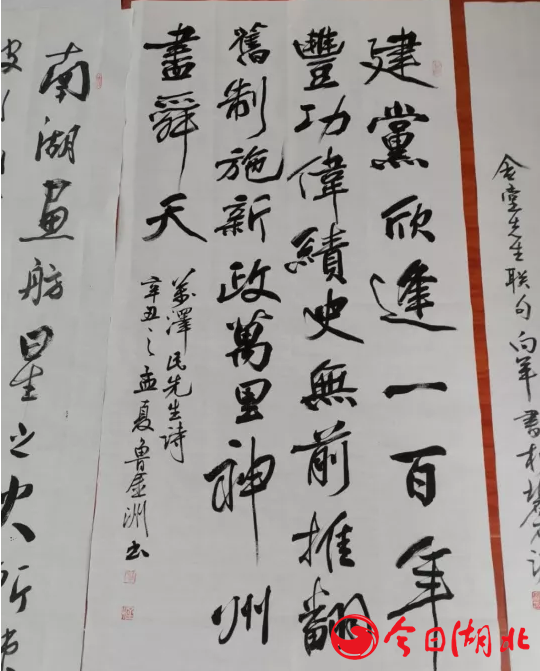 先生联句
建黨欣逢一百年
豐功偉績史無前推翻
舊制施新政萬里神州
盡舜天
澤民先生詩
辛丑之孟夏魯 洲书
南湖画舫星之火所
今日湖北